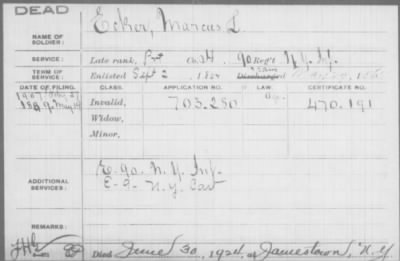 DEAD
NAME OF SOLDIER: Ecker, Marcus L.
SERVICE: Late rank, Pvt Co. H. 90 Reg't N.Y. Inf.
TERM OF SERVICE: Enlisted Sept 2, 18 Discharged
DATE OF FILING. CLASS. APPLICATION NO. LAW. CERTIFICATE NO.
1907
188 Invalid, 703.280 470.191
Widow,
Minor,
ADDITIONAL SERVICES: E. 90. N.Y. Inf.
N.Y. Cav
REMARKS:
Died June 30, 1924, at Jamestown, N.Y.